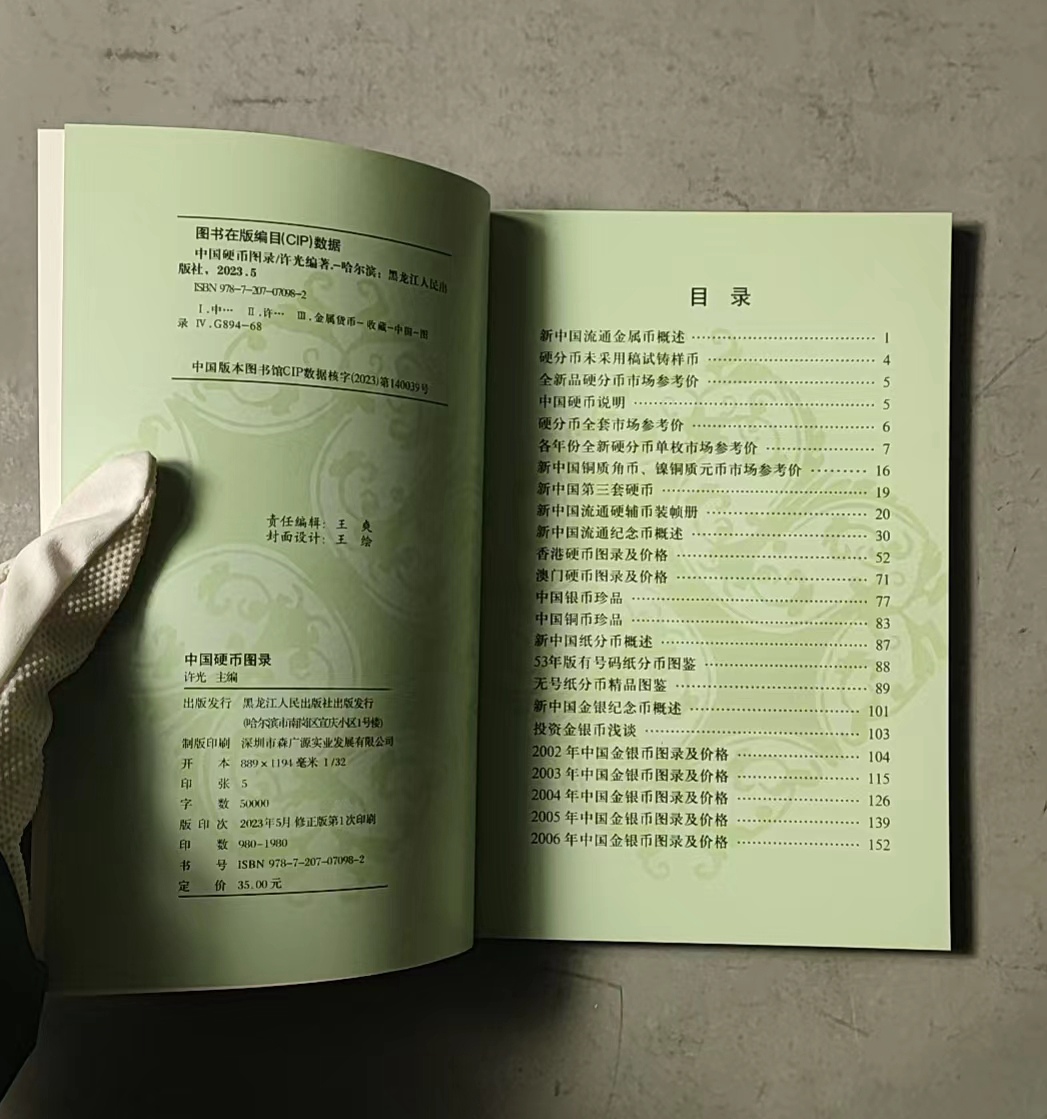 图书在版编目(CIP)数据
中国硬币图录/许光编著.—哈尔滨：黑龙江人民出
版社，2023.5
ISBN 978-7-207-07098-2
Ⅰ.中… Ⅱ.许… Ⅲ.金属货币-收藏-中国-图
录 Ⅳ.G894-68
中国版本图书馆CIP数据核字(2023)第140039号
责任编辑：王 爽
封面设计：王 绘
中国硬币图录
许光 主编
出版发行 黑龙江人民出版社出版发行
(哈尔滨市南岗区宣庆小区1号楼)
制版印刷 深圳市森广源实业发展有限公司
开 本 889×1194毫米 1/32
印 张 5
字 数 50000
版 印 次 2023年5月 修正版第1次印刷
印 数 980-1980
书 号 ISBN 978-7-207-07098-2
定 价 35.00元
目 录
新中国流通金属币概述 ………… 1
硬分币未采用稿试铸样币 ………… 4
全新品硬分币市场参考价 ………… 5
中国硬币说明 ………… 5
硬分币全套市场参考价 ………… 6
各年份全新硬分币单枚市场参考价 ………… 7
新中国铜质角币、镍铜质元币市场参考价 ………… 16
新中国第三套硬币 ………… 19
新中国流通硬辅币装帧册 ………… 20
新中国流通纪念币概述 ………… 30
香港硬币图录及价格 ………… 52
澳门硬币图录及价格 ………… 71
中国银币珍品 ………… 77
中国铜币珍品 ………… 83
新中国纸分币概述 ………… 87
53年版有号码纸分币图鉴 ………… 88
无号纸分币精品图鉴 ………… 89
新中国金银纪念币概述 ………… 101
投资金银币浅谈 ………… 103
2002年中国金银币图录及价格 ………… 104
2003年中国金银币图录及价格 ………… 115
2004年中国金银币图录及价格 ………… 126
2005年中国金银币图录及价格 ………… 139
2006年中国金银币图录及价格 ………… 152